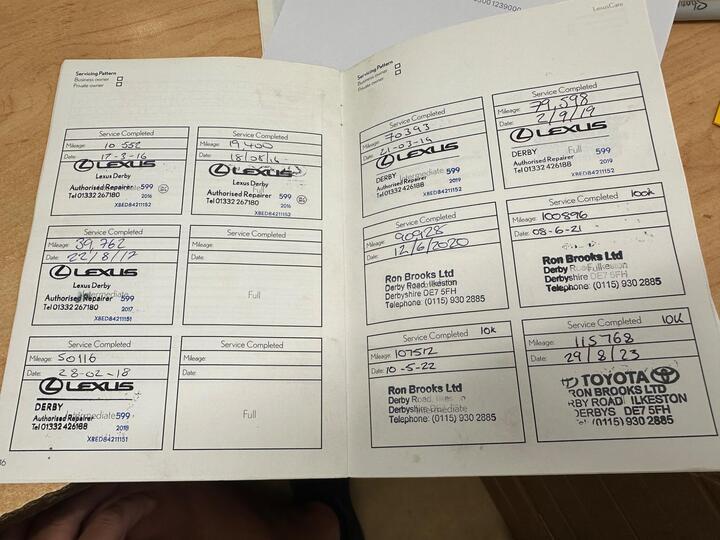 LexusCare
Servicing Pattern
Business owner
Private owner
Service Completed
Mileage: 10 552
Date: 17-3-16
LEXUS
Lexus Derby
Authorised Repairer 599
Tel 01332 267180 2016
XBED84211152
Service Completed
Mileage: 19 400
Date:
LEXUS
Lexus Derby
Authorised Repairer 599
Tel 01332 267180 2016
XBED84211152
Service Completed
Mileage: 39,762
Date: 22/8/17
LEXUS
Lexus Derby
Intermediate
Authorised Repairer 599
Tel 01332 267180 2017
XBED84211151
Service Completed
Mileage:
Date:
Full
Service Completed
Mileage: 50116
Date: 28-02-18
LEXUS
DERBY
Intermediate
Authorised Repairer 599
Tel 01332 426188 2018
XBED84211151
Service Completed
Mileage:
Date:
Full
Servicing Pattern
Business owner
Private owner
Service Completed
Mileage: 70393
Date:
LEXUS
DERBY Intermediate 599
Authorised Repairer
Tel 01332 426188 2019
XBED84211152
Service Completed
Mileage: 79,598
Date: 2/9/19
LEXUS
DERBY Full 599
Authorised Repairer
Tel 01332 426188 2019
XBED84211152
Service Completed
Mileage: 90928
Date: 12/6/2020
Ron Brooks Ltd
Derby Road, Ilkeston
Derbyshire DE7 5FH
Telephone: (0115) 930 2885
Service Completed 100k
Mileage: 100896
Date: 08-6-21
Ron Brooks Ltd
Full
Derbyshire DE7 5FH
Telephone: (0115) 930 2885
Service Completed 10k
Mileage: 107512
Date: 10-5-22
Ron Brooks Ltd
Derby Road,
Intermediate
Telephone: (0115) 930 2885
Service Completed 10K
Mileage: 115768
Date: 29/8/23
TOYOTA
RON BROOKS LTD
RBY ROAD ILKESTON
DERBYS DE7 5FH
(0115) 930 2885